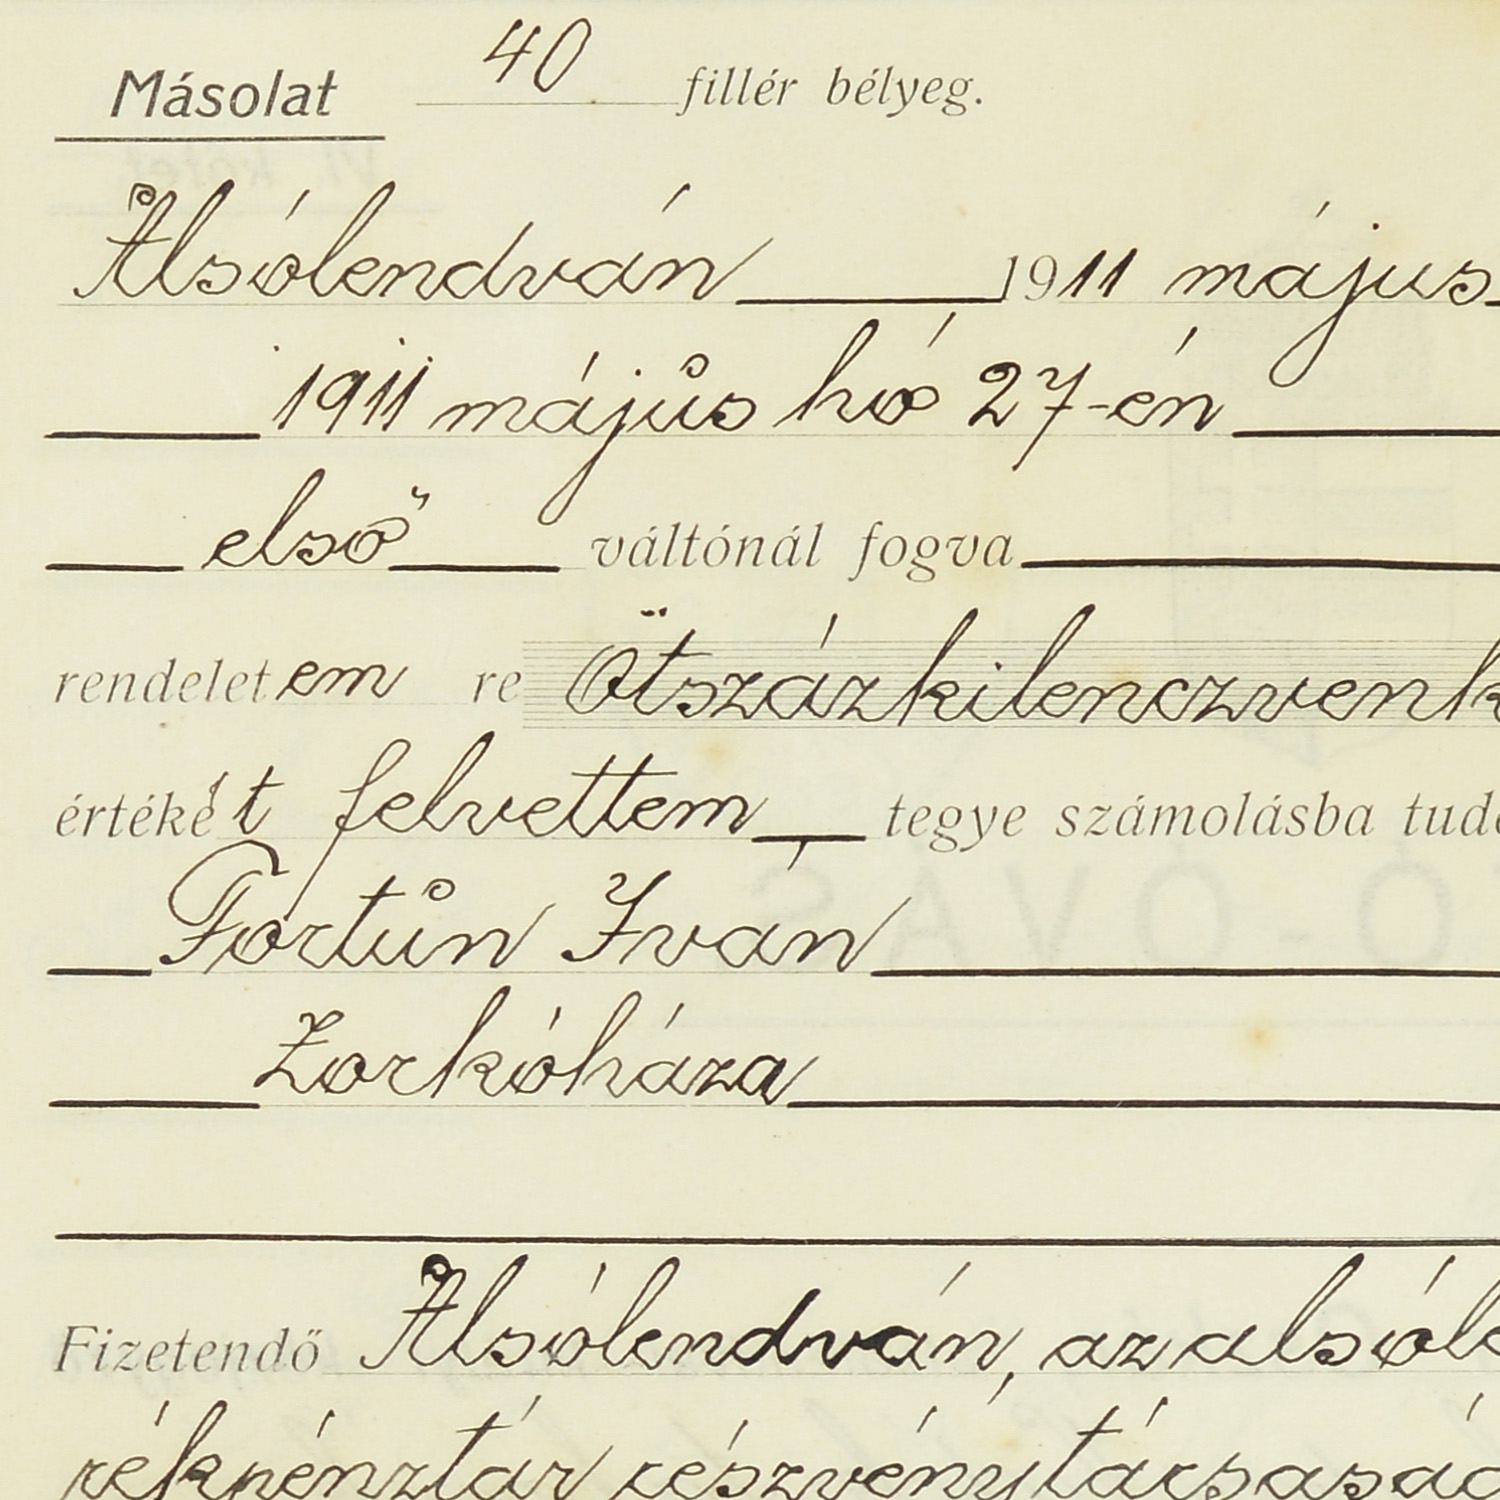 Másolat 40 fillér bélyeg.
Alsólendván 1911 május
1911 május hó 27-én
első váltónál fogva
rendeletem re Ötszázkilenczvenk
értékét felvettem tegye számolásba tud
Fortún Iván
Zorkóháza
Fizetendő Alsólendván, az alsóle
rékpénztár részvénytársasá